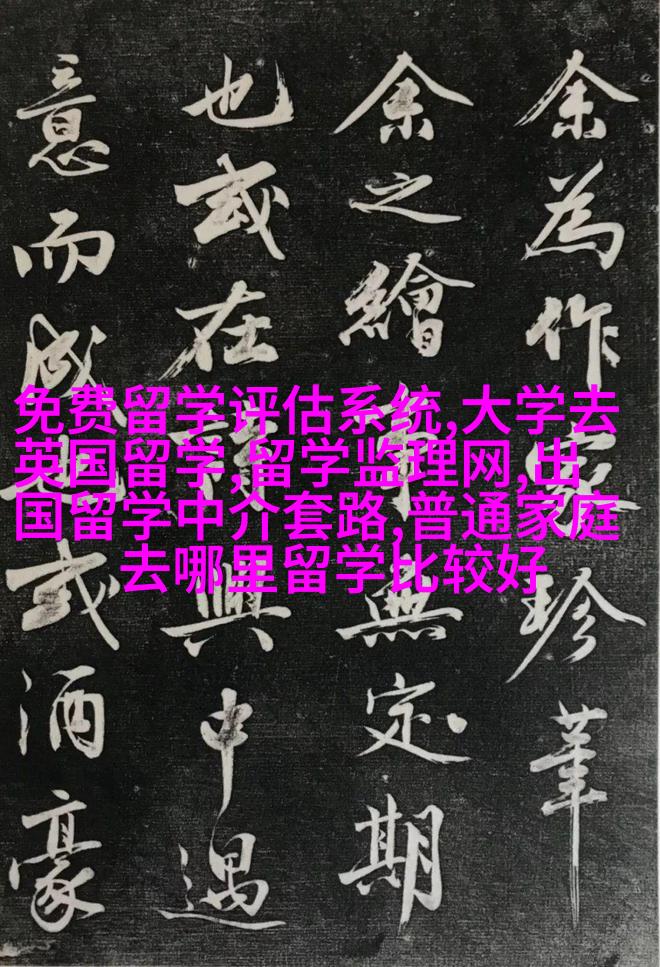 余為作家珍
余之繪事無定期
也或在詩興中遇
意而成或酒豪
免费留学评估系统,大学去
英国留学,留学监理网,出
国留学中介套路,普通家庭
去哪里留学比较好